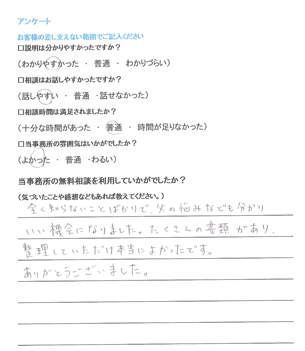 アンケート
お客様の差し支えない範囲でご記入ください
□説明は分かりやすかったですか?
(わかりやすかった ・ 普通 ・ わかりづらい)
□相談はお話しやすかったですか?
(話しやすい ・ 普通 ・話せなかった)
□相談時間は満足されましたか?
(十分な時間があった ・ 普通 ・ 時間が足りなかった)
□当事務所の雰囲気はいかがでしたか?
(よかった ・ 普通 ・わるい)
当事務所の無料相談を利用していかがでしたか?
(気づいたことや感想などもあれば教えてください。)
全く知らないことばかりで、父の悩みなども分かり
いい機会になりました。たくさんの書類があり、
整理していただけ本当によかったです。
ありがとうございました。